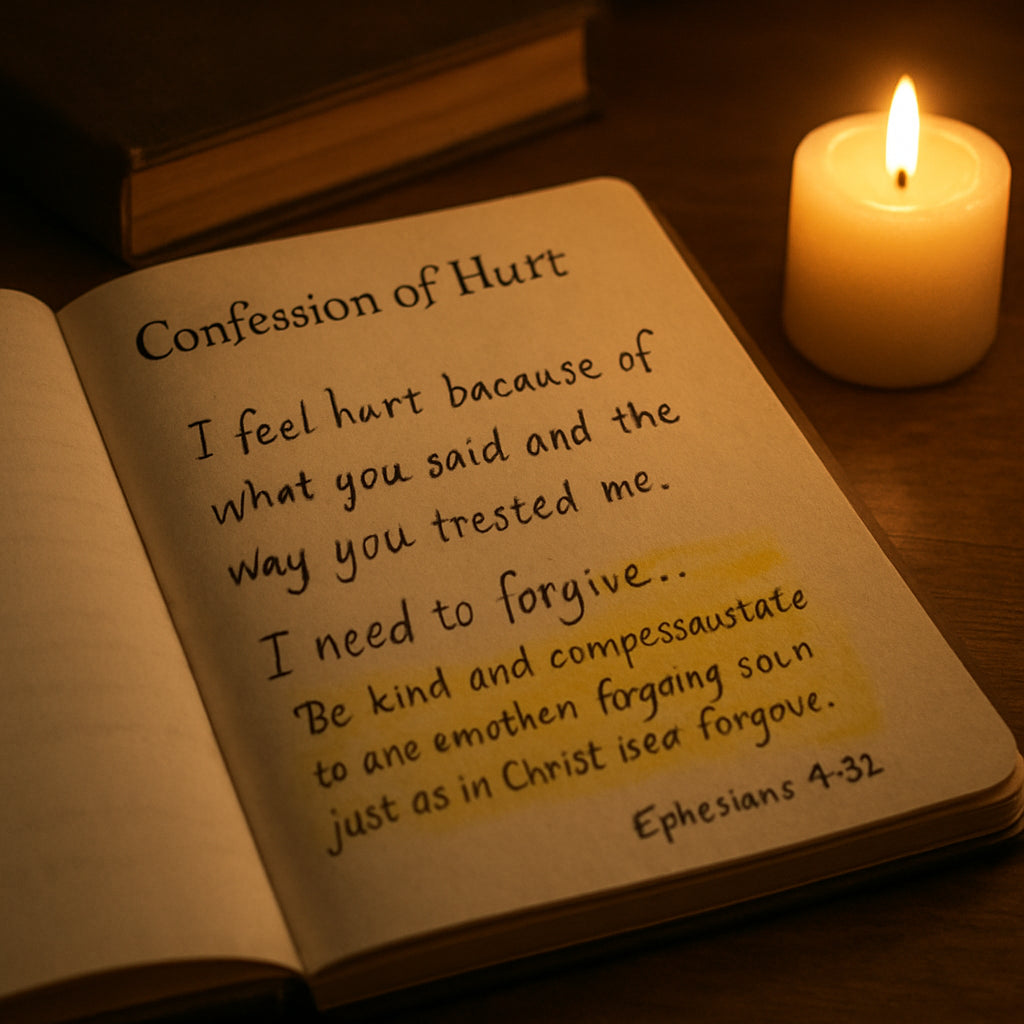 Confession of Hurt
I feel hurt bacause of
what you said and the
way you trested me.
I need to forgive..
Be kind and compessaustate
to ane emothen forgaing soun
just as in Christ isea forgove.
Ephesians 4-32